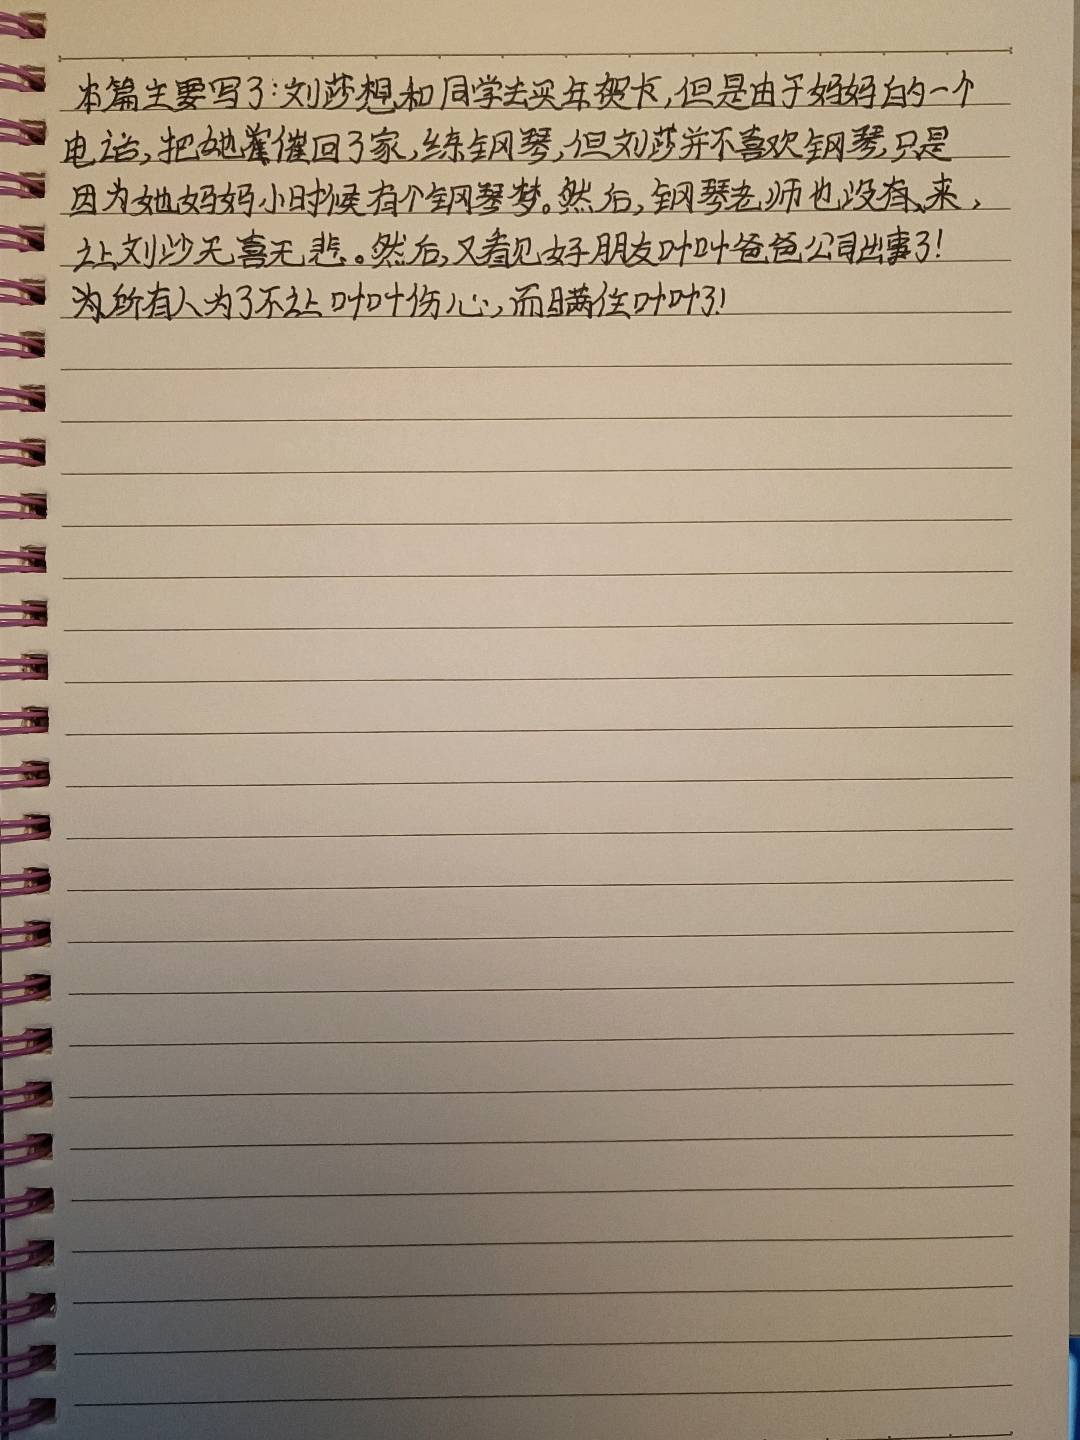 本篇主要写了:刘莎想和同学去买年贺卡,但是由于妈妈的一个
电话,把她催回了家,练钢琴,但刘莎并不喜欢钢琴,只是
因为她妈妈小时候有个钢琴梦。然后,钢琴老师也没有来,
让刘沙无喜无悲。然后,又看见好朋友叶叶爸爸公司出事了!
所有人为了不让叶叶伤心,而瞒住叶叶了!